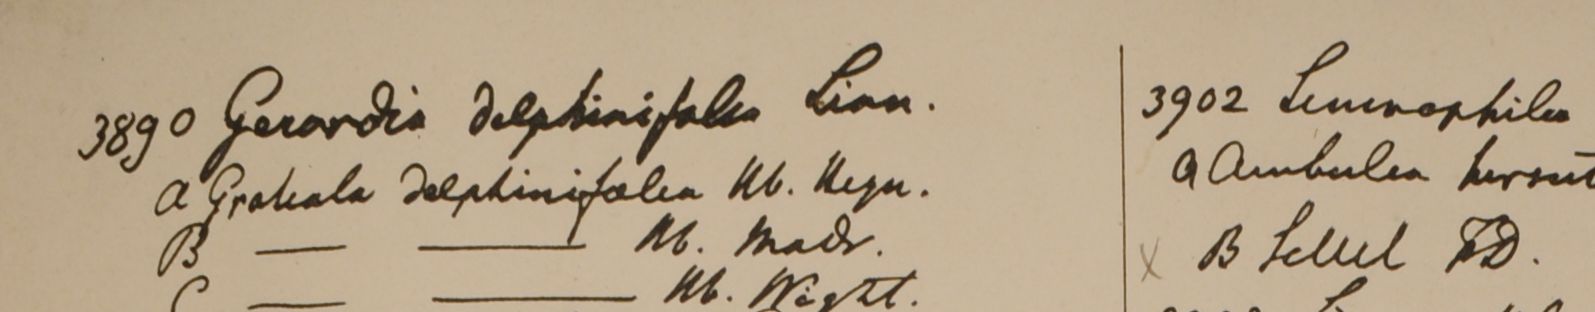 3890 Gerardia delphinifolia Linn.
a Gratiola delphinifolia Hb. Heyn.
B — — Hb. Madr.
C — — Hb. Wight.
3902 Limnophila
a Ambulia hirsut
x B Sillet FD.